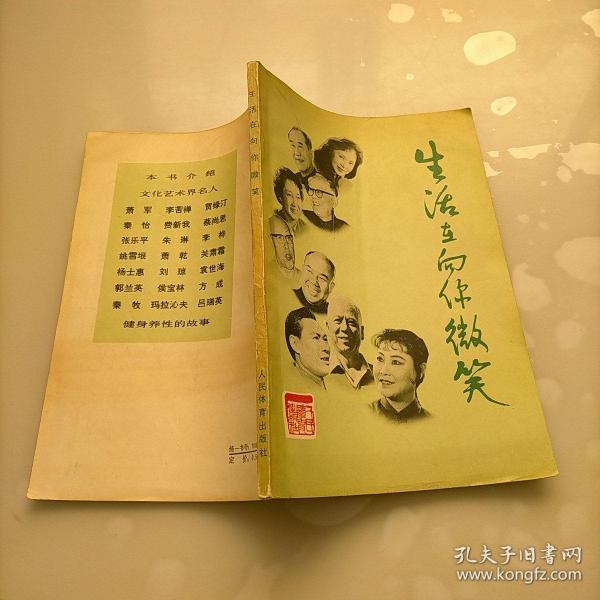 生活在向你微笑
生活在向你微笑
人民体育出版社
本书介绍
文化艺术界名人
萧军 李苦禅 贺绿汀
秦怡 费新我 蔡尚思
张乐平 朱琳 李梓
姚雪垠 萧乾 关肃霜
杨士惠 刘琼 袁世海
郭兰英 侯宝林 方成
秦牧 玛拉沁夫 吕瑞英
健身养性的故事
统一书号
定价
孔夫子旧书网
www.kongfz.com